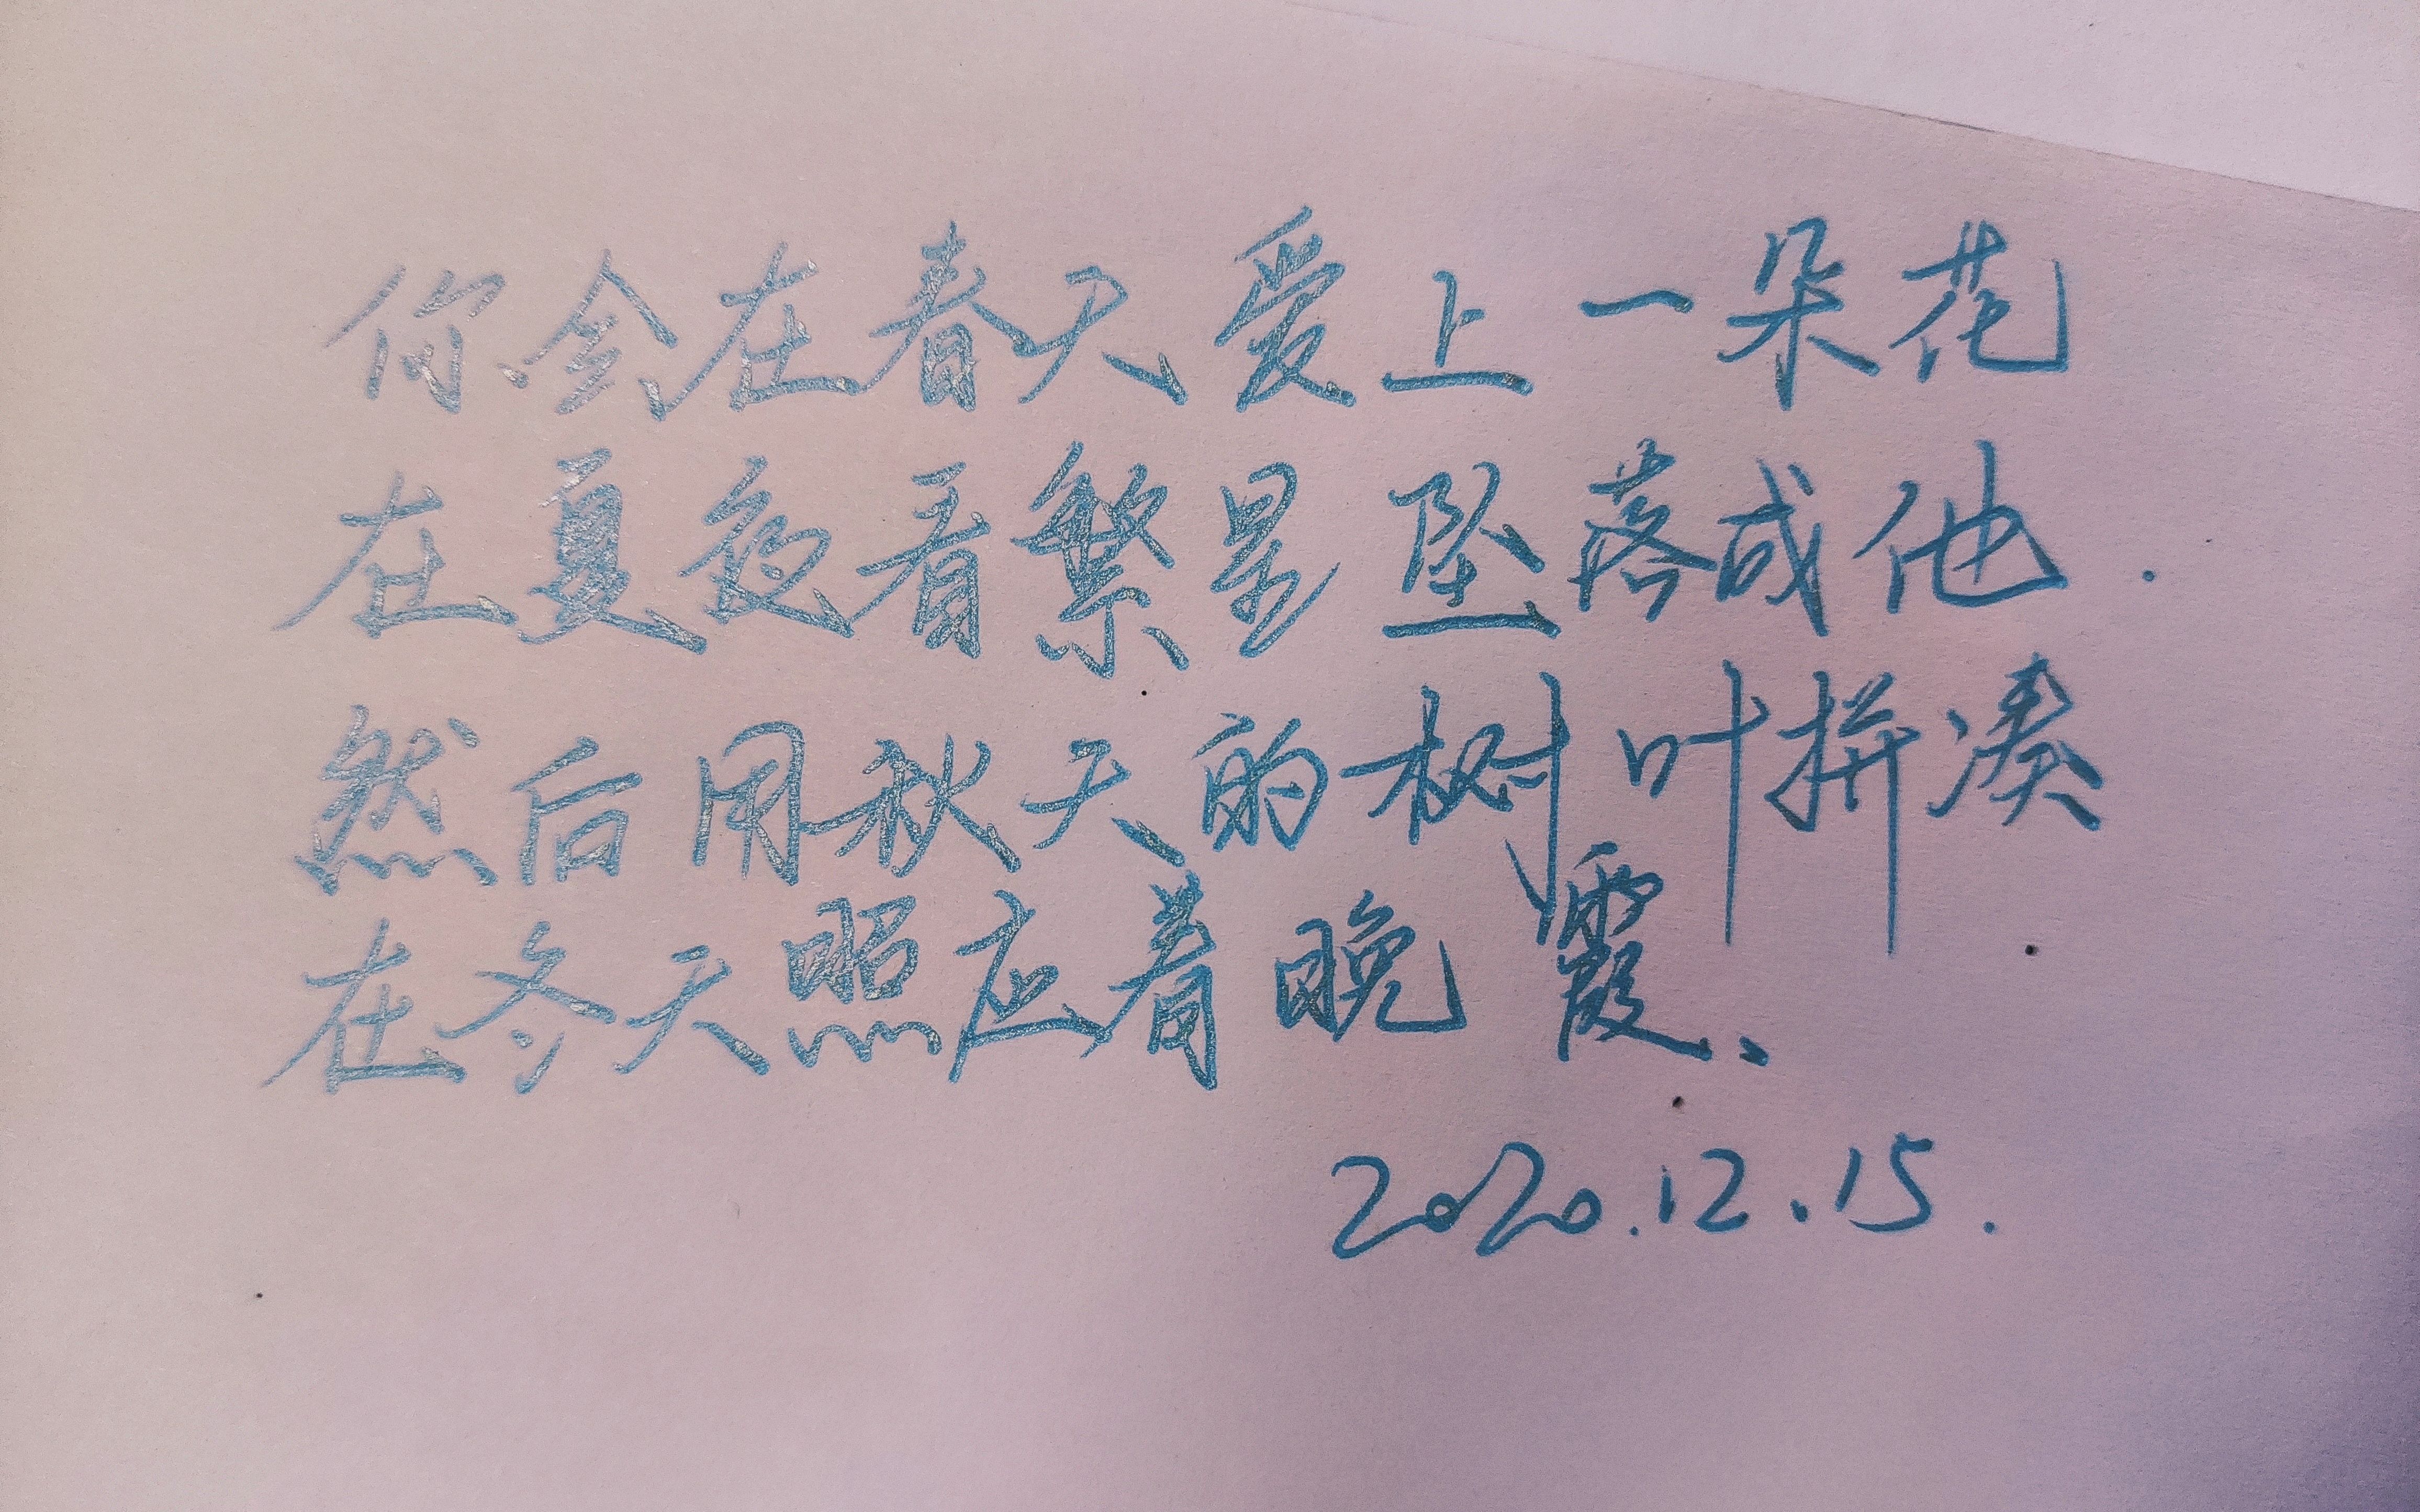 你会在春天爱上一朵花
在夏夜看繁星坠落成他.
然后用秋天的树叶拼凑
在冬天照应着晚霞、
2020.12.15.